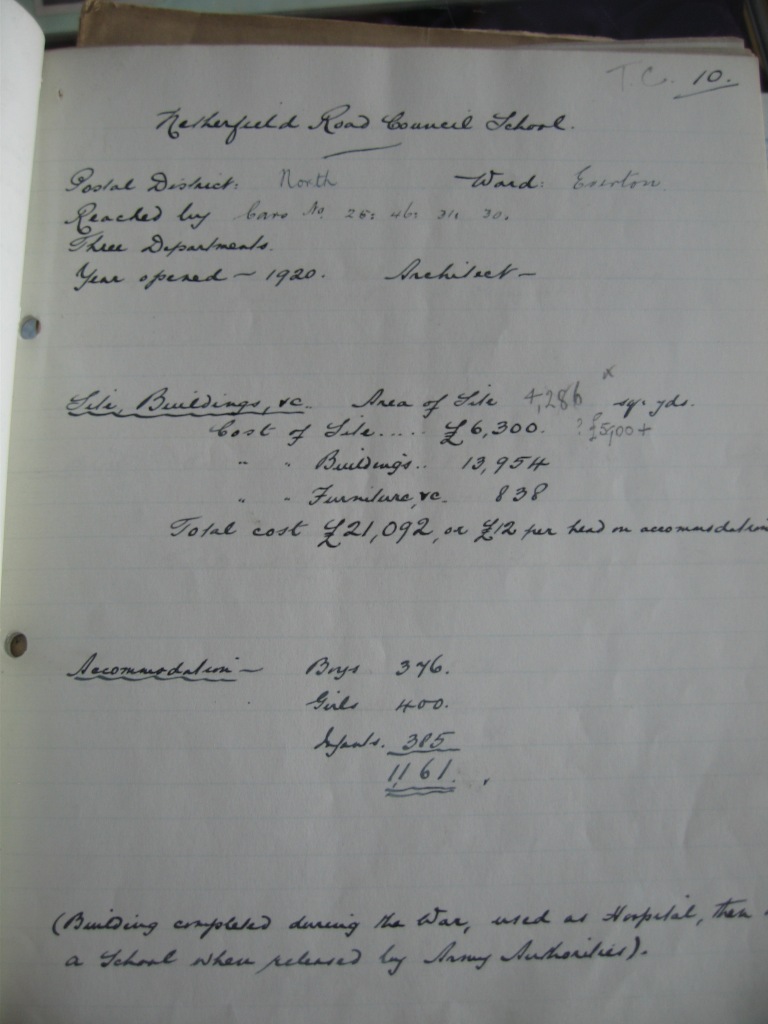 T.C. 10.
Netherfield Road Council School.
Postal District: North Ward: Everton.
Reached by Cars No. 25: 46: 31: 30.
Three Departments.
Year opened — 1920. Architect —
Site, Buildings, &c. Area of Site 4,286 x sq. yds.
Cost of Site..... £6,300. ? £5,00+
" " Buildings.. 13,954
" " Furniture, &c. 838
Total cost £21,092, or £12 per head on accommodation
Accommodation — Boys 376.
Girls 400.
Infants. 385
1161.
(Building completed during the War, used as Hospital, then
a School when released by Army Authorities).